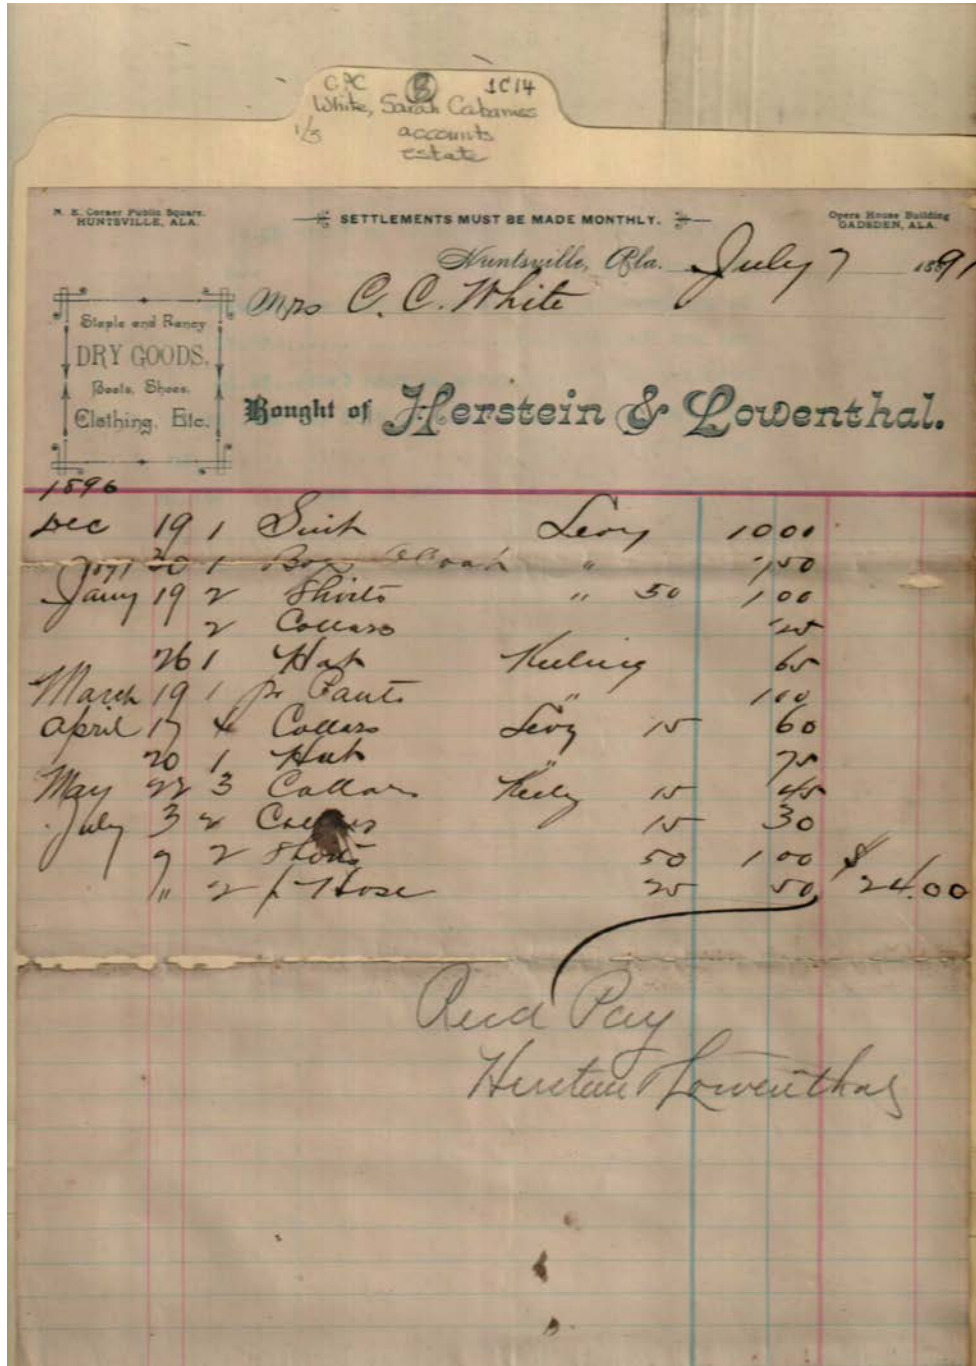 CPC B 1C14
White, Sarah Cabaniss
1/3 accounts
estate
N. E. Corner Public Square.
HUNTSVILLE, ALA.
SETTLEMENTS MUST BE MADE MONTHLY.
Opera House Building
GADSDEN, ALA.
Huntsville, Ala. July 7 1897
Mrs C. C. White
Staple and Fancy
DRY GOODS.
Boots, Shoes,
Clothing, Etc.
Bought of Herstein & Lowenthal.
1896
Dec 19 1 Suit Levy 10 00
20 1 " 7 50
Jany 19 2 Shirts " 50 1 00
2 Collars 25
26 1 Hat 65
March 19 1 pr Pants " 1 00
April 17 4 Collars Levy 15 60
20 1 Hat " 75
May 22 3 Collars 15 45
July 3 2 Collars 15 30
7 2 Shirts 50 1 00
" 2 pr Hose 25 50 $24.00
Recd Pay
Herstein & Lowenthal